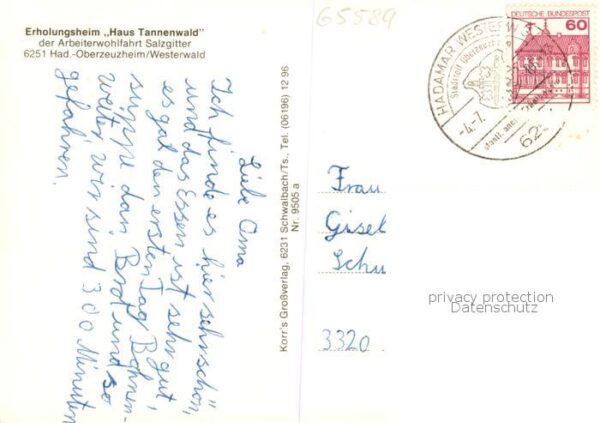 65589
Erholungsheim „Haus Tannenwald"
der Arbeiterwohlfahrt Salzgitter
6251 Had.-Oberzeuzheim/Westerwald
Liebe Oma
Ich finde es hier sehr schön,
und das Essen ist sehr gut,
es gab den ersten Tag Bohnen-
suppe dan Brot und so
weiter, wir sind 300 Minuten
gefahren.
Korr's Großverlag, 6231 Schwalbach/Ts., Tel. (06196) 12 96
Nr. 9505 a
DEUTSCHE BUNDESPOST
60
HADAMAR, WESTERW
Stadtteil Oberzeuzheim
staatl. anerk.
-4.-7.
625
Frau
Gisel
Schu
3320
privacy protection
Datenschutz